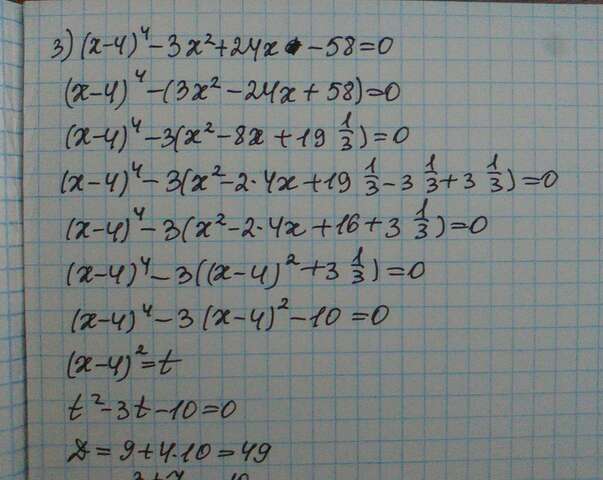 3) (x-4)⁴-3x²+24x-58=0
(x-4)⁴-(3x²-24x+58)=0
(x-4)⁴-3(x²-8x+19 1/3)=0
(x-4)⁴-3(x²-2·4x+19 1/3-3 1/3+3 1/3)=0
(x-4)⁴-3(x²-2·4x+16+3 1/3)=0
(x-4)⁴-3((x-4)²+3 1/3)=0
(x-4)⁴-3(x-4)²-10=0
(x-4)²=t
t²-3t-10=0
D=9+4·10=49